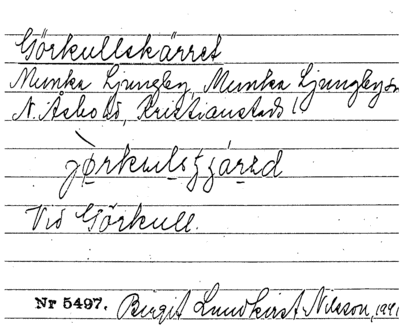 Görkullskärret
Munka Ljungby, Munka Ljungby sn
N. Åsbo hd, Kristianstads l.
Vid Görkull.
Nr 5497. Birgit Lundkvist-Nilsson, 1941